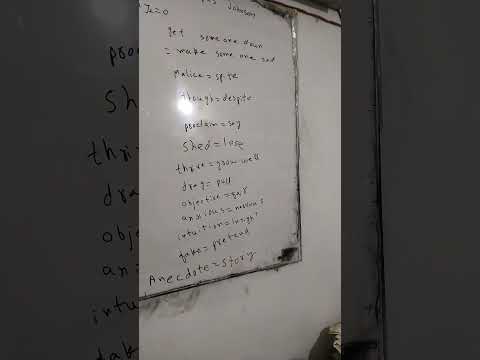 Johnson
get someone down
= make some one sad
malice = spite
though = despite
proclaim = say
shed = lose
thrive = grow well
drag = pull
objective = fair
anxious = nervous
intuition = insight
fake = pretend
Anecdote = story